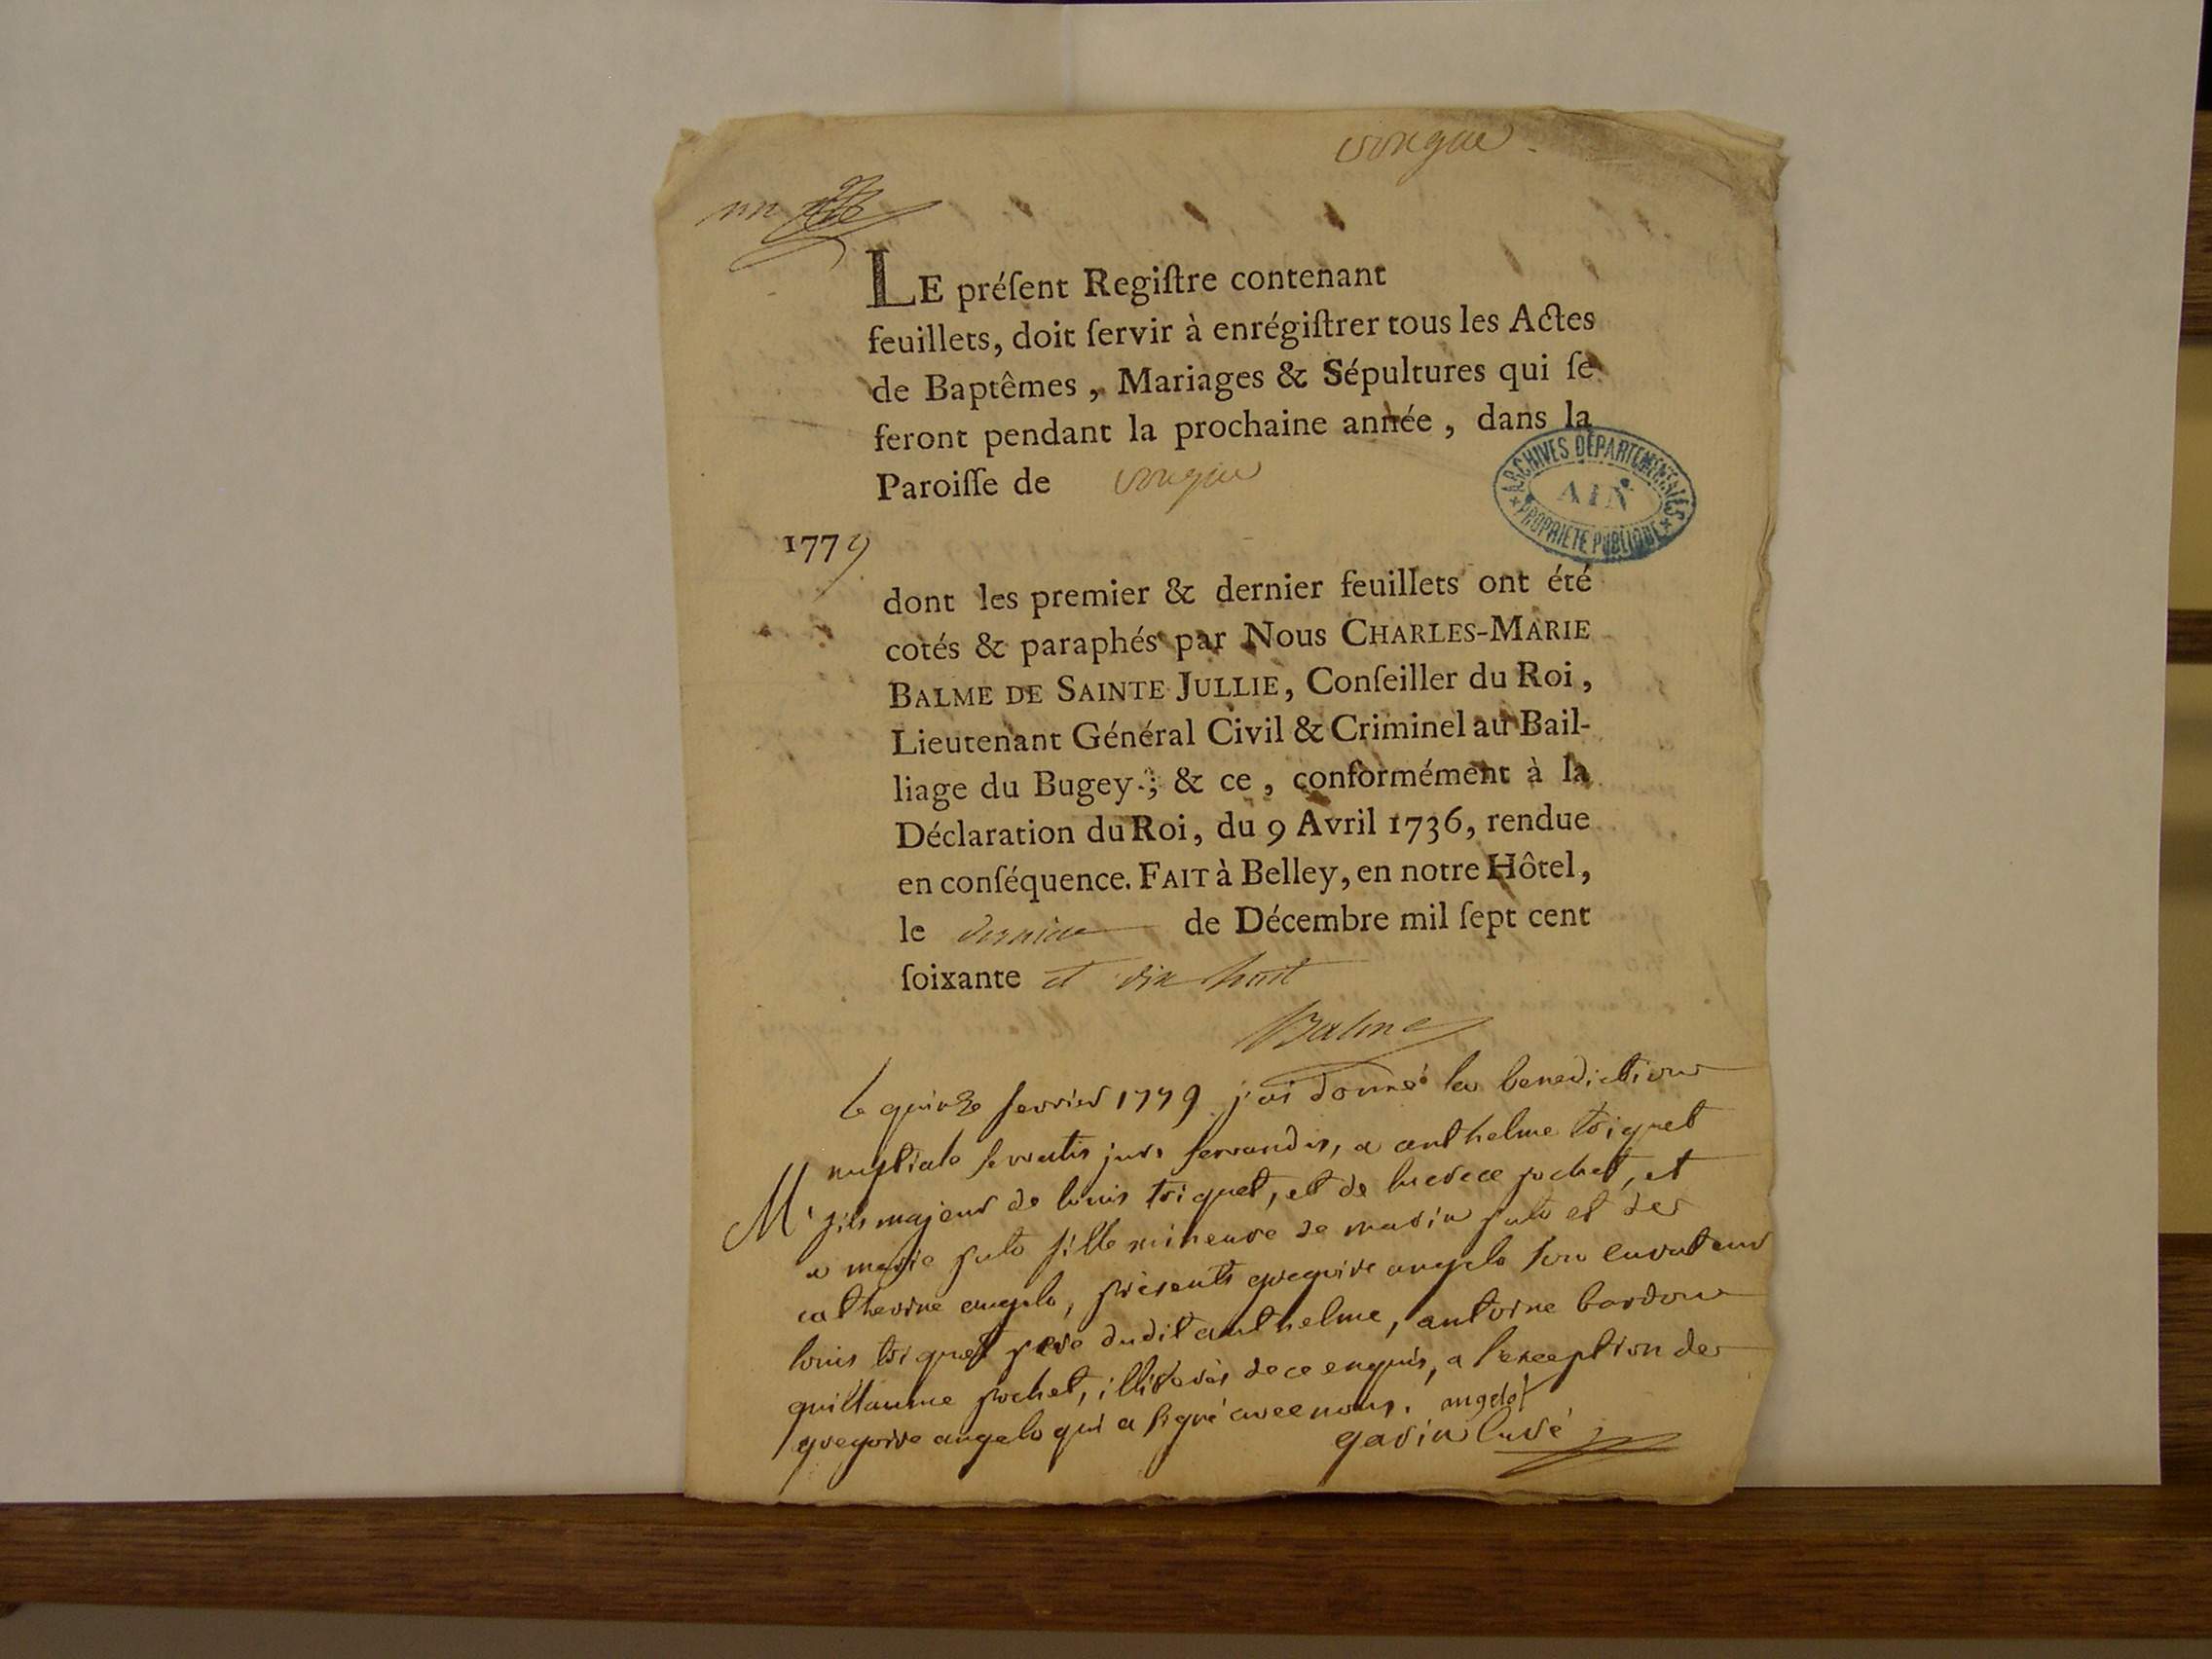 vongne
un
LE préſent Regiſtre contenant
feuillets, doit ſervir à enrégiſtrer tous les Actes
de Baptêmes, Mariages & Sépultures qui ſe
feront pendant la prochaine année, dans la
Paroiſſe de vongne
ARCHIVES DÉPARTEMENTALES
AIN
PROPRIÉTÉ PUBLIQUE
1779
dont les premier & dernier feuillets ont été
cotés & paraphés par Nous CHARLES-MARIE
BALME DE SAINTE JULLIE, Conſeiller du Roi,
Lieutenant Général Civil & Criminel au Bail-
liage du Bugey; & ce, conformément à la
Déclaration du Roi, du 9 Avril 1736, rendue
en conſéquence. FAIT à Belley, en notre Hôtel,
le dernier de Décembre mil ſept cent
ſoixante et dix huit
Balme
le quinze fevrier 1779 j'ai donné la benediction
nuptiale servatis juris servandis, a anthelme triquet
M. fils majeur de louis triquet, et de lucrece pochet, et
a marie fille mineure de marin et de
catherine angelo, présents gregoire angelo son curateur
louis triquet pere dudit anthelme, antoine bardon
guillaume pochet, illiterés de ce enquis, a l'exception de
gregoire angelo qui a signé avec nous. angelot
gavin curé